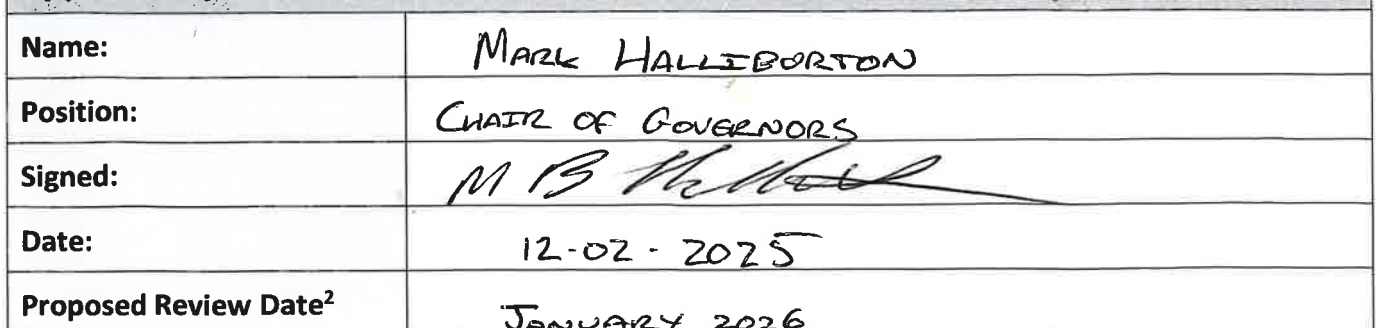 Name: MARK HALLIBORTON
Position: CHAIR OF GOVERNORS
Signed: M B
Date: 12-02-2025
Proposed Review Date² JANUARY 2026